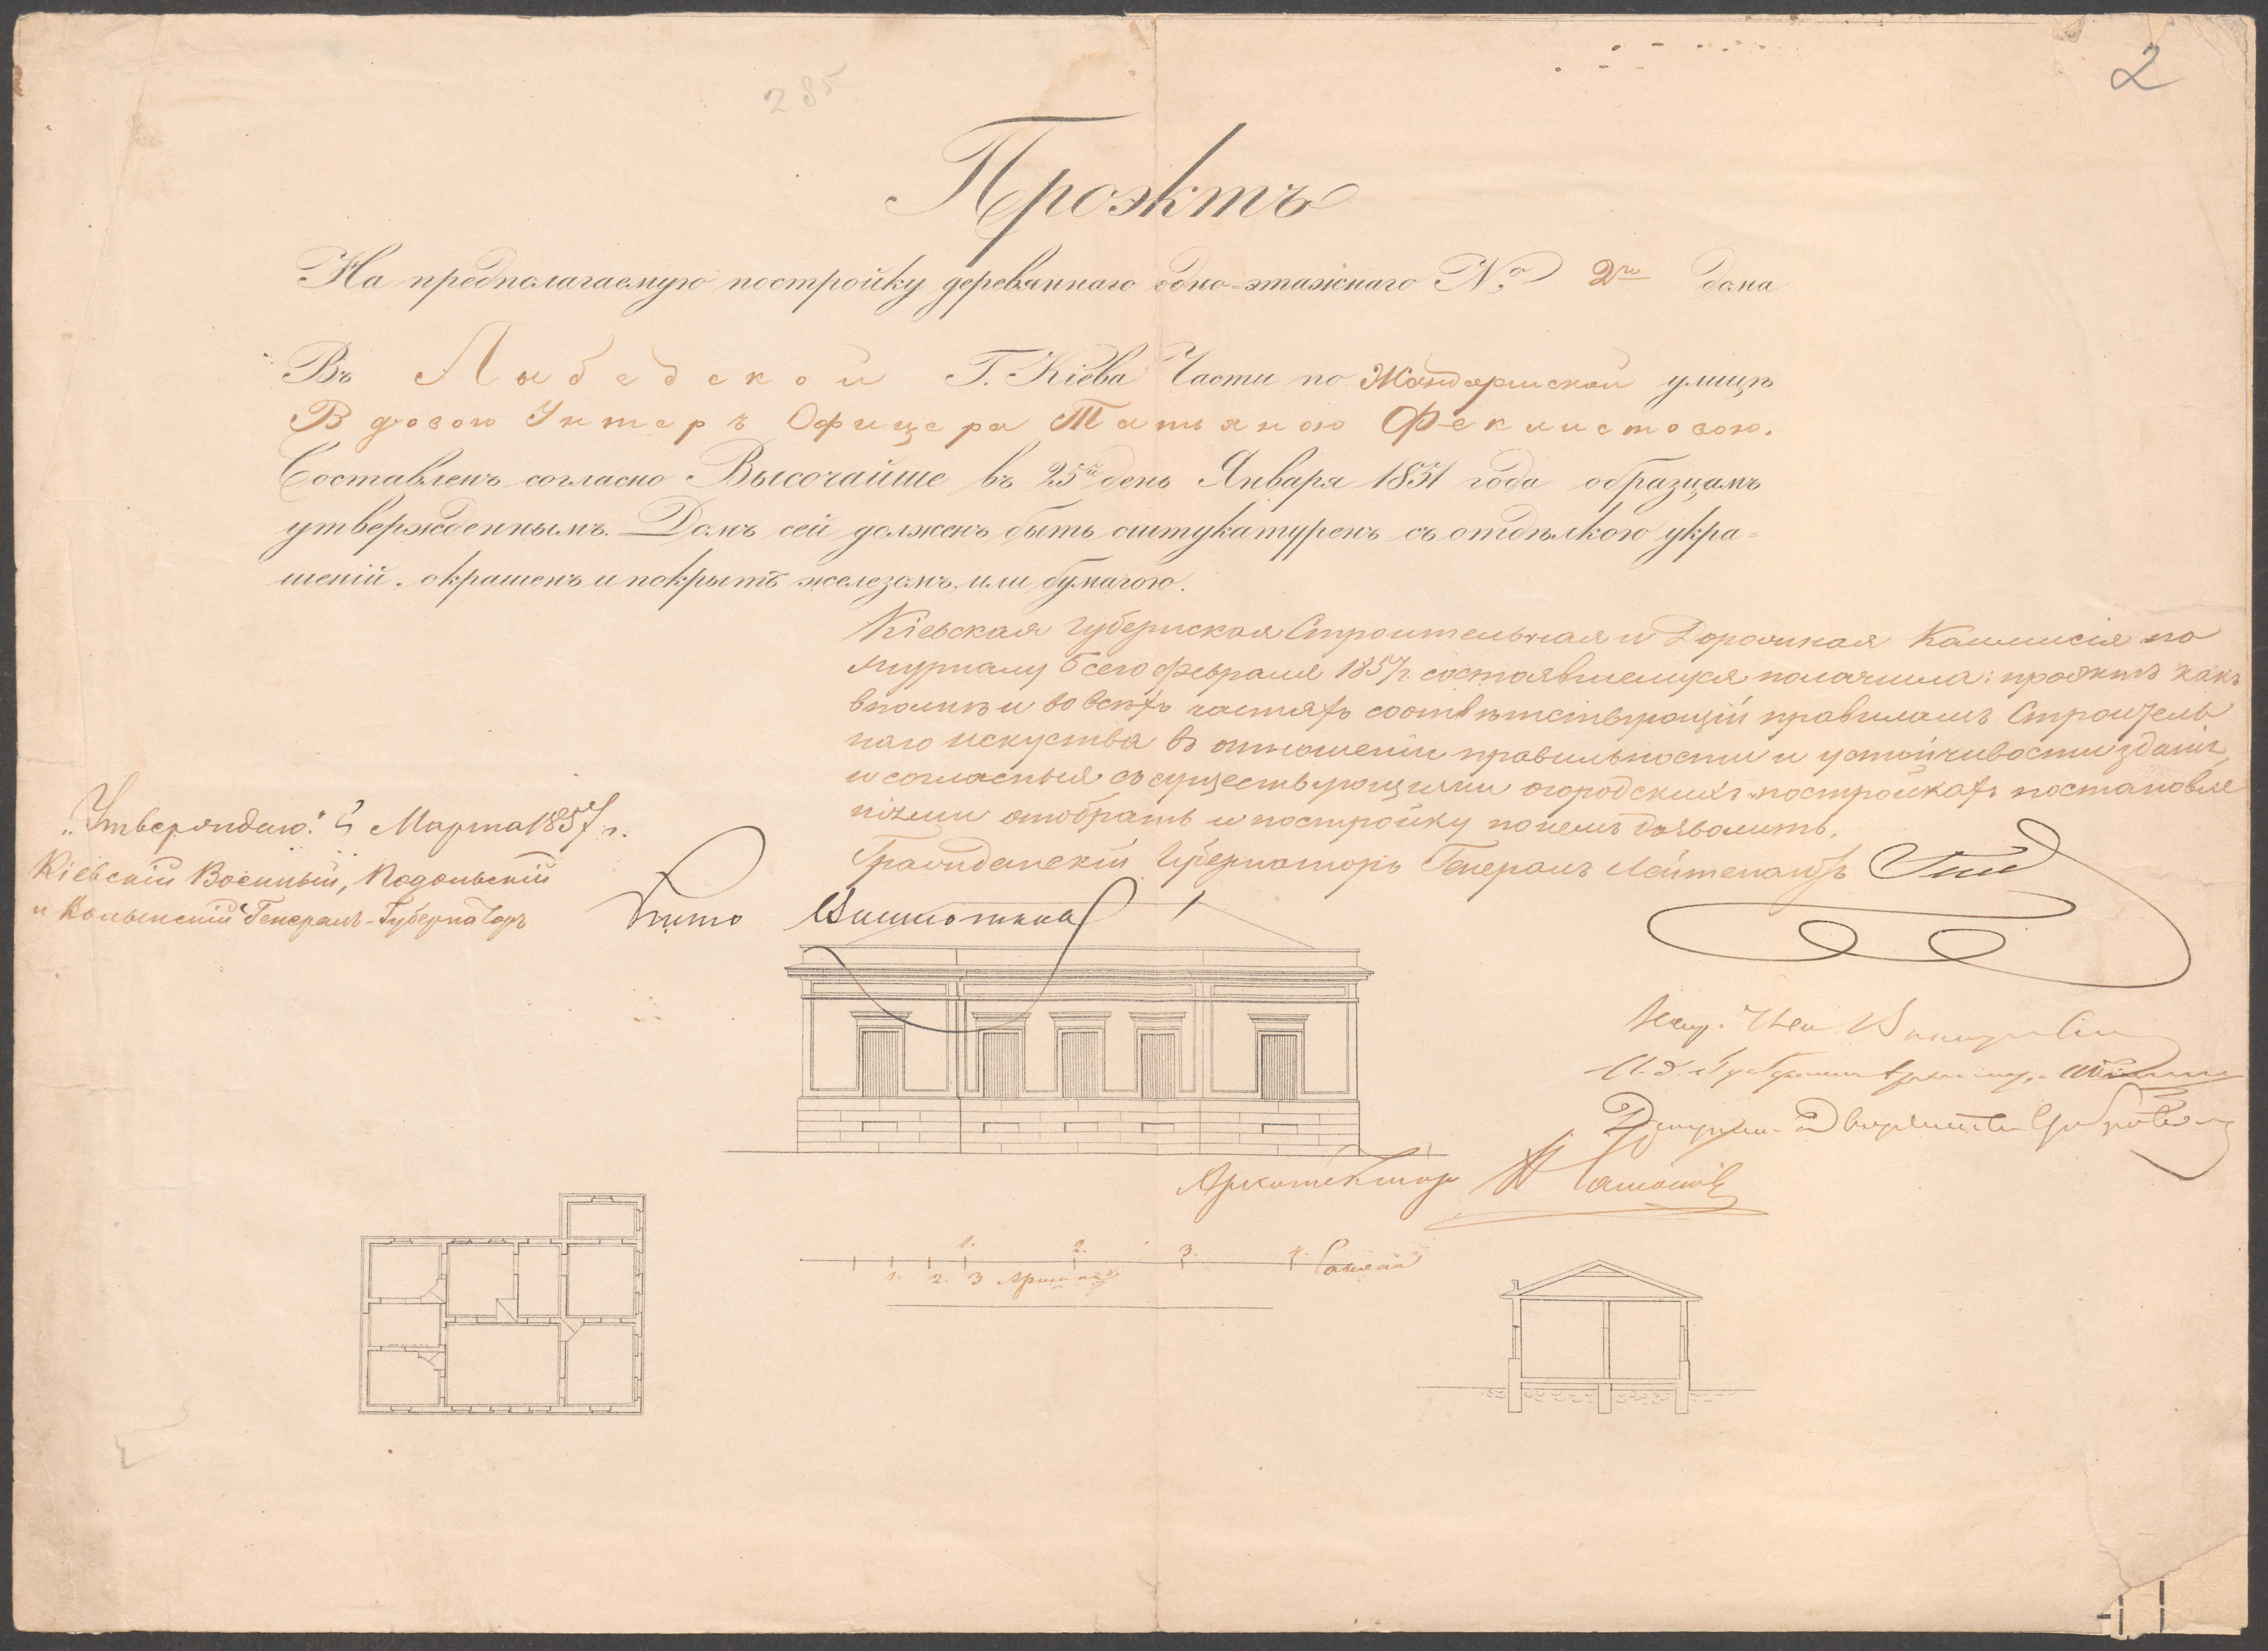 2
285
Проэктъ
На предполагаемую постройку деревяннаго одно-этажнаго № 2го дома
Въ Лыбедской Г. Кіева Части по Жандармской улицѣ
Вдовою Унтеръ Офицера Татьяною Феклистовою.
Составленъ согласно Высочайше въ 25й день Января 1851 года образцамъ
утвержденнымъ. Домъ сей долженъ быть оштукатуренъ съ отдѣлкою укра-
шеній. окрашенъ и покрытъ железомъ, или бумагою.
Кіевская Губернская Строительная и Дорожная Коммисія по
журналу 6 сего февраля 1857 г. состоявшемуся : проэктъ какъ
вполнѣ и во всѣхъ частяхъ соотвѣтствующій правиламъ Строитель
наго искуства въ отношеніи правильности и устойчивости зданія,
и согласныя съ существующими о городскихъ постройкахъ постановле
ніями и постройку по нему дозволить.
Гражданскій Губернаторъ Генералъ Лейтенантъ
„Утверждаю." 5 Марта 1857 г.
Кіевскій Военный, Подольскій
и Волынскій Генералъ-Губернаторъ
Архитекторъ
1. 2. 3. 4. Саженей
1. 2. 3 Аршинъ